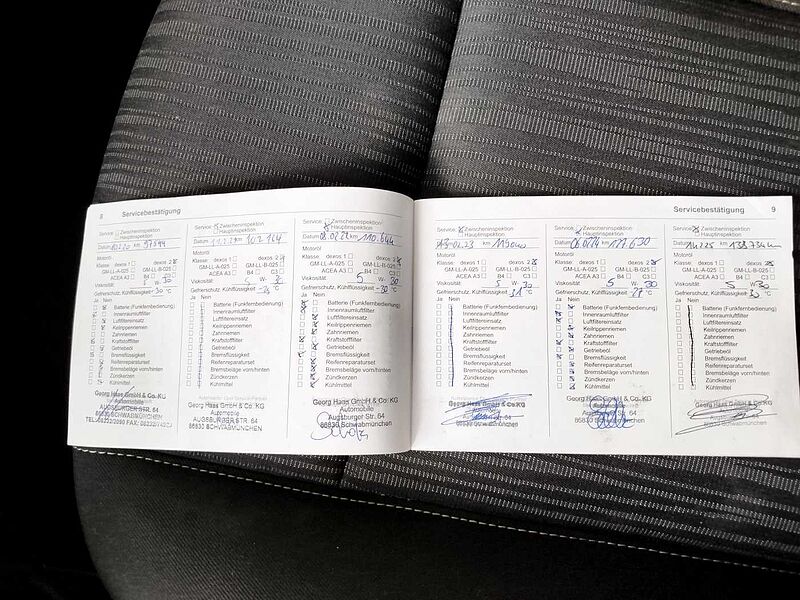 8 Servicebestätigung
Service: Zwischeninspektion
Hauptinspektion
Datum 97544
Motoröl
Klasse: dexos 1 dexos 2
GM-LL-A-025 GM-LL-B-025
ACEA A3 B4 C3
Viskosität: W 30
Gefrierschutz, Kühlflüssigkeit -30 °C
Ja Nein
Batterie (Funkfernbedienung)
Innenraumluftfilter
Luftfiltereinsatz
Keilrippenriemen
Zahnriemen
Kraftstofffilter
Getriebeöl
Bremsflüssigkeit
Reifenreparaturset
Bremsbeläge vorn/hinten
Zündkerzen
Kühlmittel
Georg Haas GmbH & Co. KG
Automobile
AUGSBURGER STR. 64
86830 SCHWABMÜNCHEN
Service: Zwischeninspektion
Hauptinspektion
Datum km 102 164
Motoröl
Klasse: dexos 1 dexos 2
GM-LL-A-025 GM-LL-B-025
ACEA A3 B4 C3
Viskosität: W
Gefrierschutz, Kühlflüssigkeit °C
Ja Nein
Batterie (Funkfernbedienung)
Innenraumluftfilter
Luftfiltereinsatz
Keilrippenriemen
Zahnriemen
Kraftstofffilter
Getriebeöl
Bremsflüssigkeit
Reifenreparaturset
Bremsbeläge vorn/hinten
Zündkerzen
Kühlmittel
Georg Haas GmbH & Co. KG
Automobile
AUGSBURGER STR. 64
86830 SCHWABMÜNCHEN
Service: Zwischeninspektion
Hauptinspektion
Datum 08.02.22 km 110.644
Motoröl
Klasse: dexos 1 dexos 2
GM-LL-A-025 GM-LL-B-025
ACEA A3 B4 C3
Viskosität: 5 W 30
Gefrierschutz, Kühlflüssigkeit -30 °C
Ja Nein
Batterie (Funkfernbedienung)
Innenraumluftfilter
Luftfiltereinsatz
Keilrippenriemen
Zahnriemen
Kraftstofffilter
Getriebeöl
Bremsflüssigkeit
Reifenreparaturset
Bremsbeläge vorn/hinten
Zündkerzen
Kühlmittel
Georg Haas GmbH & Co. KG
Automobile
Augsburger Str. 64
86830 Schwabmünchen
Servicebestätigung 9
Service: Zwischeninspektion
Hauptinspektion
Datum km
Motoröl
Klasse: dexos 1 dexos 2
GM-LL-A-025 GM-LL-B-025
ACEA A3 B4 C3
Viskosität: 5 W 30
Gefrierschutz, Kühlflüssigkeit °C
Ja Nein
Batterie (Funkfernbedienung)
Innenraumluftfilter
Luftfiltereinsatz
Keilrippenriemen
Zahnriemen
Kraftstofffilter
Getriebeöl
Bremsflüssigkeit
Reifenreparaturset
Bremsbeläge vorn/hinten
Zündkerzen
Kühlmittel
Georg Haas GmbH & Co. KG
86830 Schwabmünchen
Service: Zwischeninspektion
Hauptinspektion
Datum km 127.630
Motoröl
Klasse: dexos 1 dexos 2
GM-LL-A-025 GM-LL-B-025
ACEA A3 B4 C3
Viskosität: 5 W 30
Gefrierschutz, Kühlflüssigkeit °C
Ja Nein
Batterie (Funkfernbedienung)
Innenraumluftfilter
Luftfiltereinsatz
Keilrippenriemen
Zahnriemen
Kraftstofffilter
Getriebeöl
Bremsflüssigkeit
Reifenreparaturset
Bremsbeläge vorn/hinten
Zündkerzen
Kühlmittel
Georg Haas GmbH & Co. KG
Augsburger Str. 64
86830 Schwabmünchen
Service: Zwischeninspektion
Hauptinspektion
Datum km
Motoröl
Klasse: dexos 1 dexos 2
GM-LL-A-025 GM-LL-B-025
ACEA A3 B4 C3
Viskosität: 5 W 30
Gefrierschutz, Kühlflüssigkeit °C
Ja Nein
Batterie (Funkfernbedienung)
Innenraumluftfilter
Luftfiltereinsatz
Keilrippenriemen
Zahnriemen
Kraftstofffilter
Getriebeöl
Bremsflüssigkeit
Reifenreparaturset
Bremsbeläge vorn/hinten
Zündkerzen
Kühlmittel
Georg Haas GmbH & Co. KG
86830 Schwabmünchen